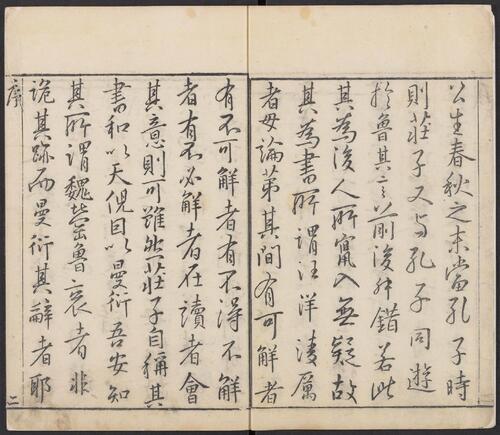 公生春秋之末當孔子時
則莊子又与孔子同遊
於魯其言前後舛錯若此
其為後人所竄入無疑故
其為書所謂汪洋淩厲
者毋論第其間有可解者
有不可解者有不得不解
者有不必解者在讀者會
其意則可雖然莊子自稱其
書和以天倪因以曼衍吾安知
其所謂魏瑩魯哀者非
詭其跡而曼衍其辭者耶
序
二